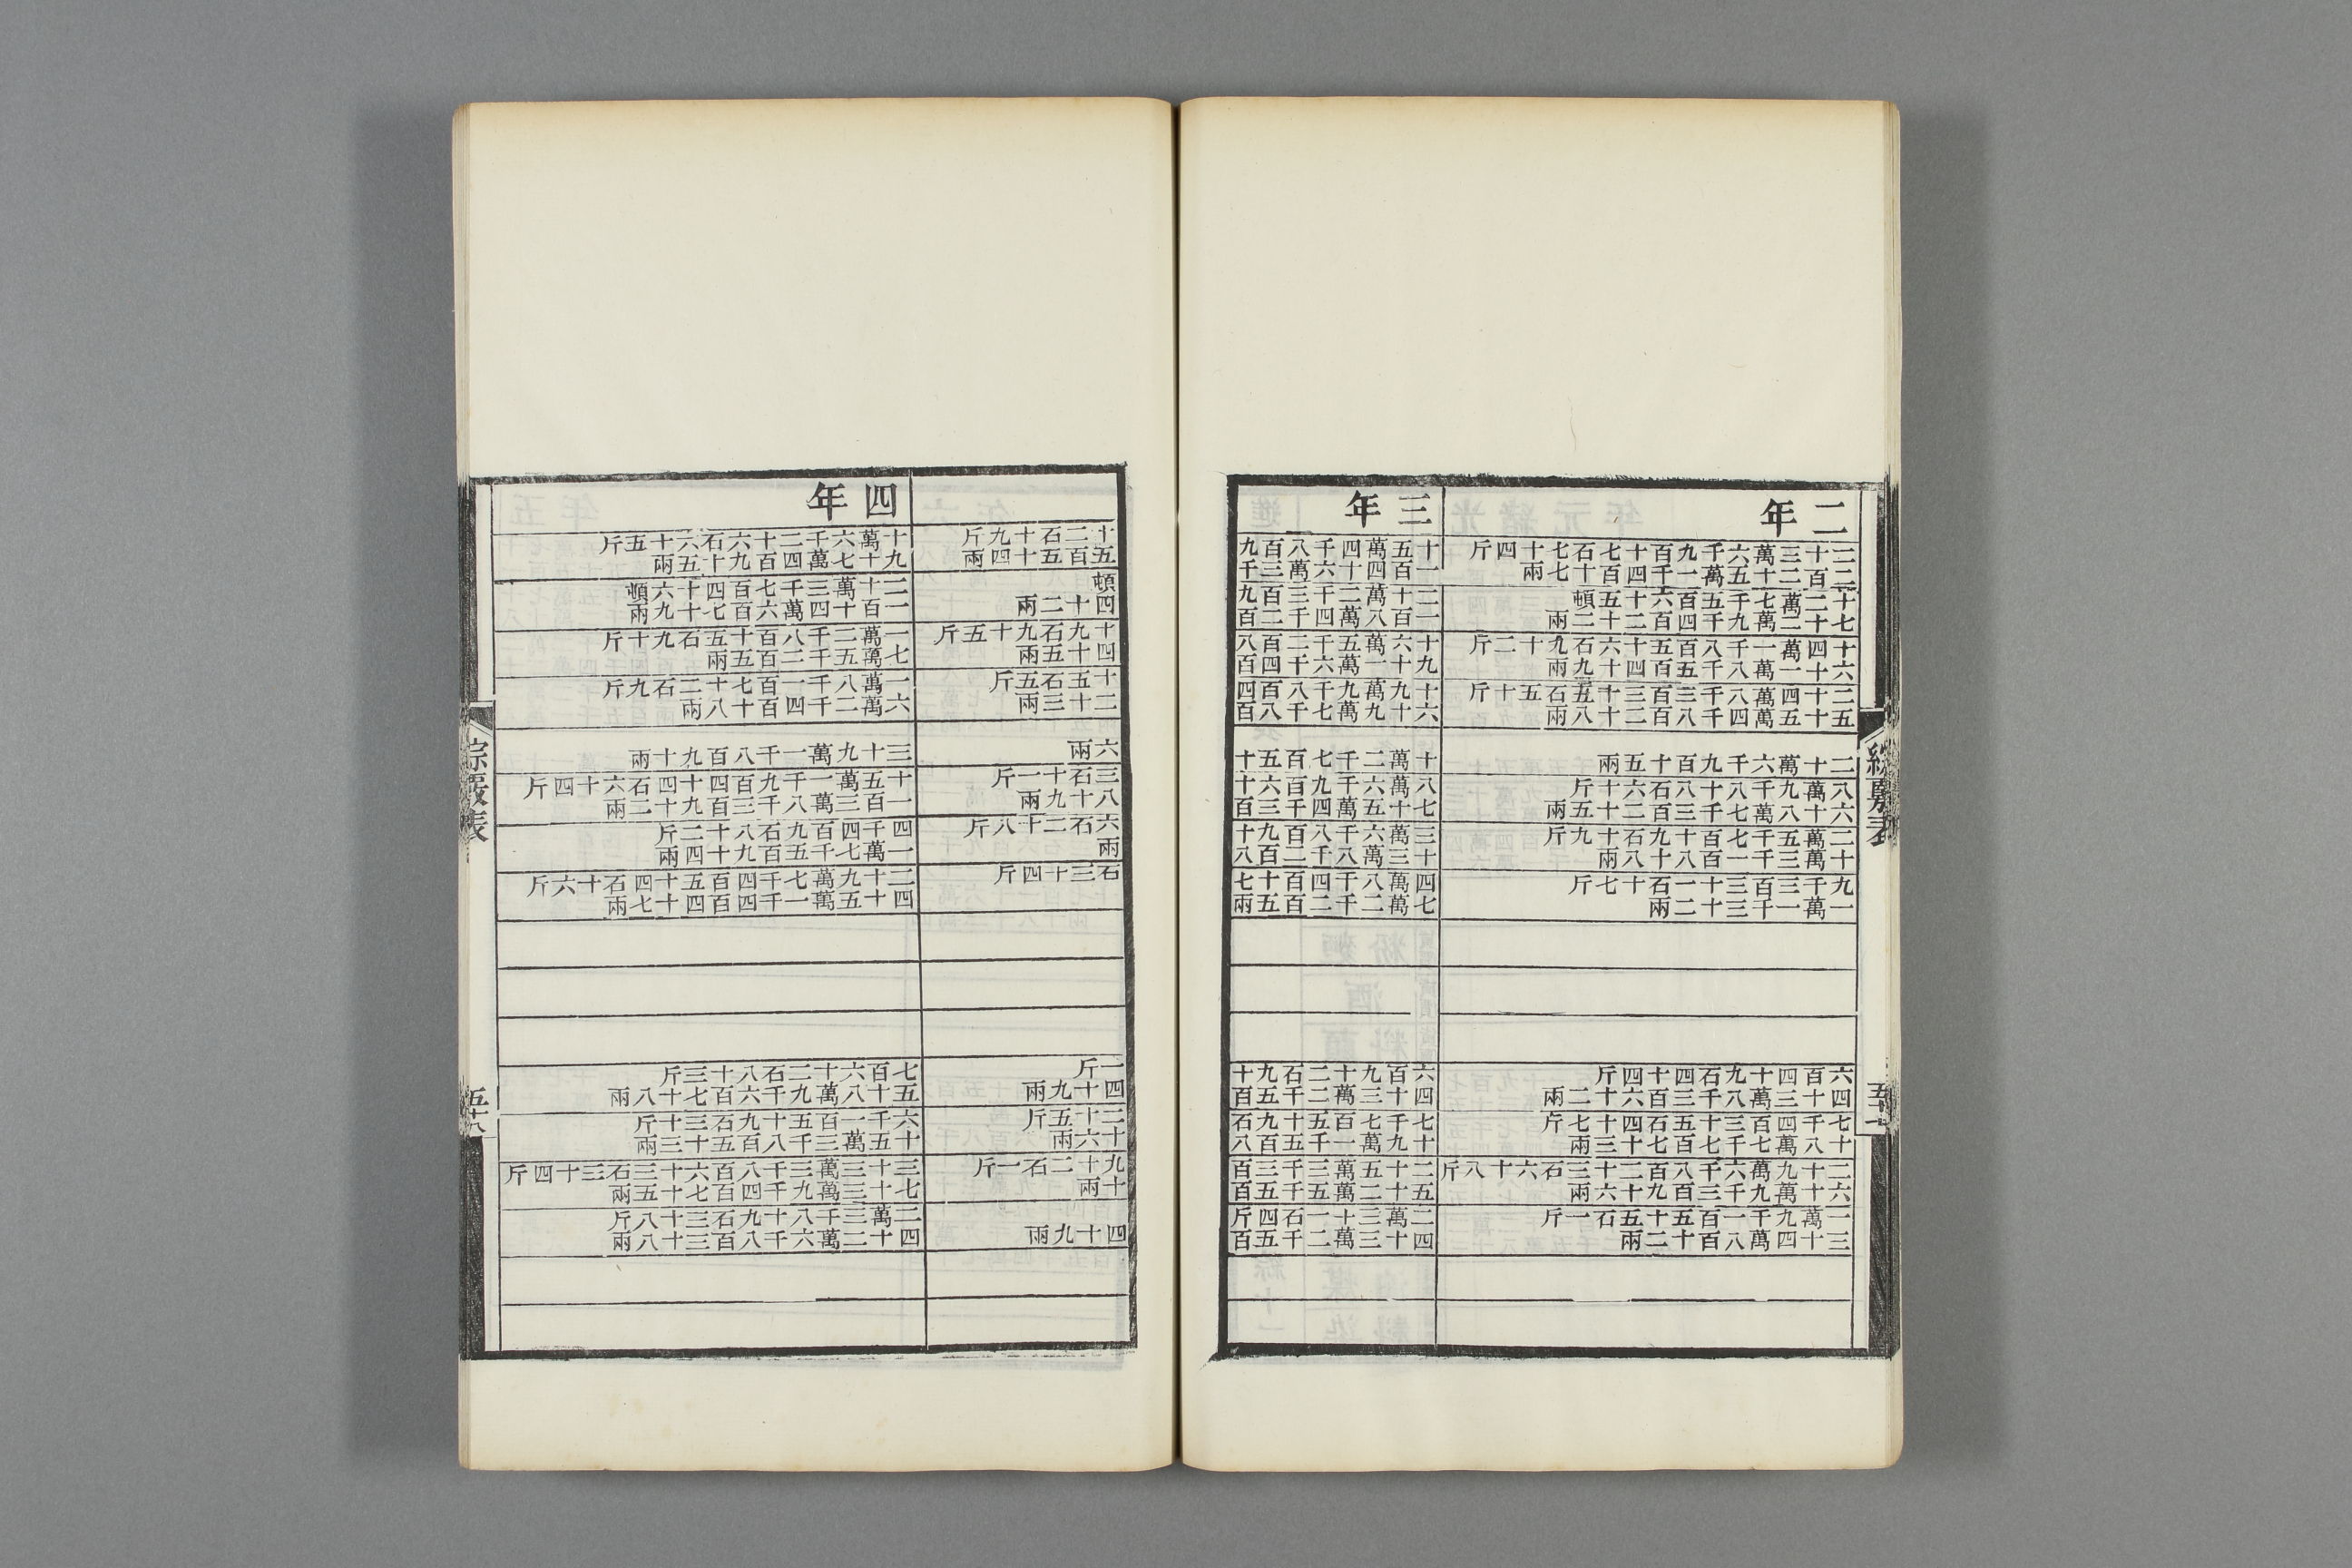 二年
二十三萬六千九百十七石七十四斤
二百二十五萬一千四百七十七兩
十二萬七千五百六十五頓
七十二萬九千四百二十二兩
十四萬一千八百五十六石九十二斤
六十一萬八千五百四十九兩
二十四萬八千三百三十五石五十斤
五十五萬四千八百二十八兩
二十萬六千九百十五兩
八萬九千八十八石六十斤
六十八萬七千三百二十五兩
二萬五千七百十九石十九斤
十萬三千一百八十八兩
九千三百三十一石十七斤
一萬一千三十二兩
六百四十九石四十四斤
四十三萬八千三百六十二兩
七千四百三十七石四十七斤
十八萬七千七百七十三兩
二十九萬六千八百二十三石六十八斤
六十萬九千三百九十六兩
一萬九千一百五十五石一斤
三十四萬八百五十二兩
三年
十五萬四千八百九
一百四十六萬三千
二十萬二千三百九
一百八十萬四千二百
十六萬五千二百八
九十一萬六千四百
十九萬九千八百四
六十九萬七千八百
十萬二千七百五十
八萬六千九百六十
七十五萬四千三百
三萬六千八百九十
十三萬八千二百八
四萬八千四百十七
七萬二千二百五兩
六百九十二石五十
四十三萬二千九百
七千七百五十九石
十九萬一千五百八
二十五萬三千三百
五十二萬五千五百
二萬三十一石四斤
四十三萬二千五百
綜覈表
五十七
十二石十九斤
五百五十四兩
頓
四十二兩
十九石九十五斤
四十五兩
十五石五斤
二十三兩
六兩
三石十一斤
八十九兩
六石二十八斤
兩
石三十四斤
一斤
四十九兩
二十五斤
十六兩
九十二石一斤
十兩
四十九兩
四年
十萬六千二十六石六十五斤
九十七萬四百九十五兩
二十萬三千七百四十六頓
一百十四萬六百七十九兩
一萬二千八百十五石九十斤
七萬五千二百五兩
一萬八千一百七十二石九斤
六萬二千四百十八兩
三十九萬一千八百九十兩
十五萬一千九百四十四石六十四斤
一百三萬八千三百九十二兩
四千四百九石八十二斤
一萬七千五百九十四兩
二十九萬七千四百五十四石十六斤
四十五萬一千四百四十七兩
七百六十二石八十三斤
六千一百五十九石三十斤
十五萬三千八百五十三兩
三十三萬三千八百六十三石三十四斤
七十三萬九千四百七十五兩
二萬三千八十九石三十八斤
四十二萬六千八百三十八兩
綜覈表
五十八